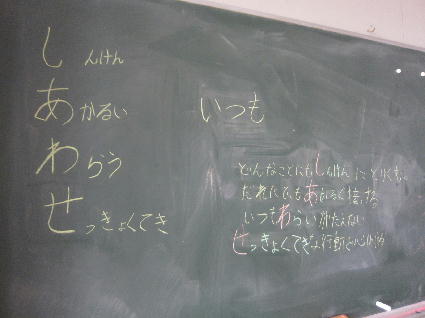 しんけん
あかるい
わらう
せっきょくてき
いつも
どんなことにもしんけんにとりくむ
だれにでもあかるく接する
いつもわらいがたえない
せっきょくてきな行動を